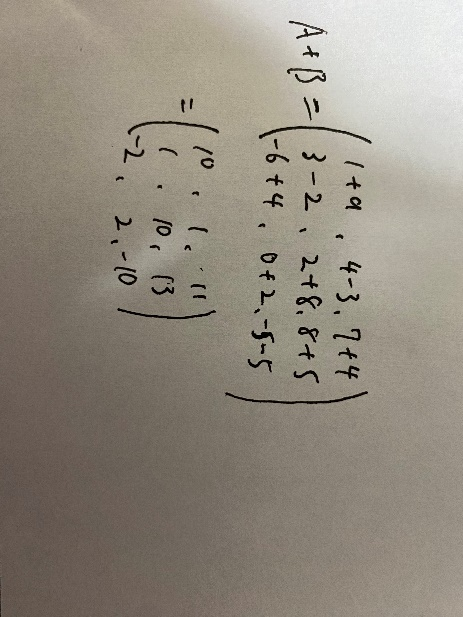 A + B = ( 1+9, 4-3, 7+4
3-2, 2+8, 8+5
-6+4, 0+2, -5-5 )
= ( 10, 1, 11
1, 10, 13
-2, 2, -10 )